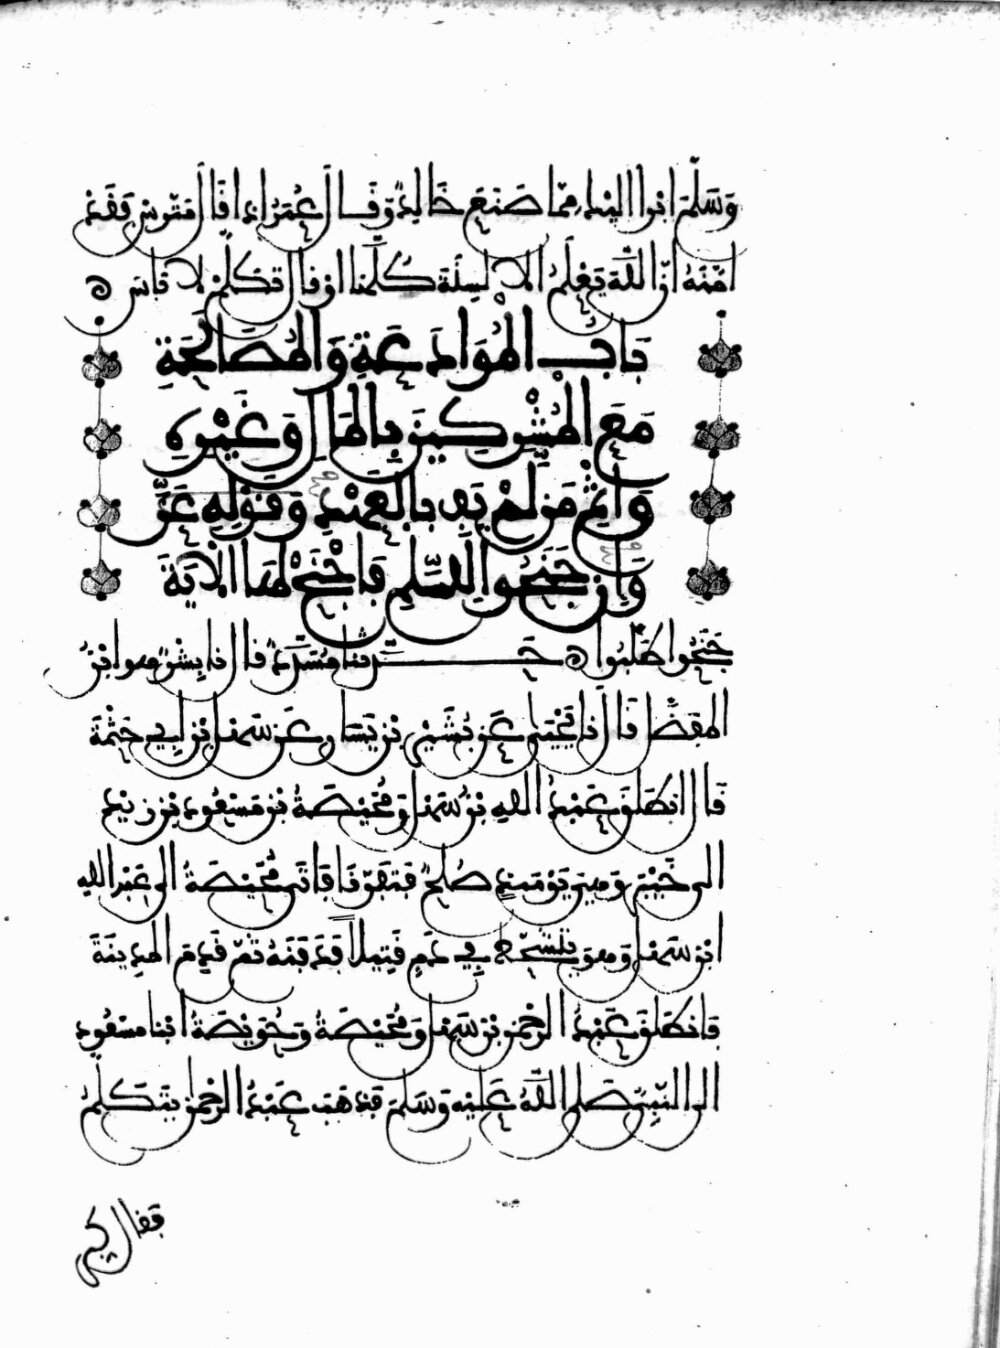 وَسَلَّمَ أَبْرَأُ إِلَيْكَ مِمَّا صَنَعَ خَالِدٌ وَقَالَ عُمَرُ إِذَا قَالَ مَتَّرَسْ فَقَدْ
آمَنَهُ إِنَّ اللَّهَ يَعْلَمُ الْأَلْسِنَةَ كُلَّهَا أو قَالَ تَكَلَّمْ لَا بَاسَ
بَابُ الْمُوَادَعَةِ وَالْمُصَالَحَةِ
مَعَ الْمُشْرِكِينَ بِالْمَالِ وَغَيْرِهِ
وَإِثْمِ مَنْ لَمْ يَفِ بِالْعَهْدِ وَقَوْلِهِ عَزَّ
وَإِن جَنَحُوا لِلسَّلْمِ فَاجْنَحْ لَهَا الْآيَةَ
جَنَحُوا طَلَبُوا حَدَّثَنَا مُسَدَّدٌ قَالَ نا بِشْرٌ هو ابْنُ
الْمُفَضَّلِ قَالَ نا يَحْيَى عَنْ بُشَيْرِ بْنِ يَسَارٍ عَنْ سَهْلِ بْنِ أَبِي حَثْمَةَ
قَالَ انْطَلَقَ عَبْدُ اللهِ بْنُ سَهْلٍ وَمُحَيِّصَةُ بْنُ مَسْعُودِ بْنِ زَيْدٍ
إلى خَيْبَرَ وَهِيَ يَوْمَئِذٍ صُلْحٌ فَتَفَرَّقَا فَأَتَى مُحَيِّصَةُ إلى عَبْدِ اللهِ
ابْنِ سَهْلٍ وَهوَ يَتَشَحَّطُ فِي دَمٍ قَتِيلًا فَدَفَنَهُ ثُمَّ قَدِمَ الْمَدِينَةَ
فَانْطَلَقَ عَبْدُ الرَّحْمَنِ بْنُ سَهْلٍ وَمُحَيِّصَةُ وَحُوَيِّصَةُ ابْنَا مَسْعُودٍ
إلى النَّبِيِّ صَلَّى اللَّهُ عَلَيْهِ وَسَلَّمَ فَذَهَبَ عَبْدُ الرَّحْمَنِ يَتَكَلَّمُ
فقال كبر